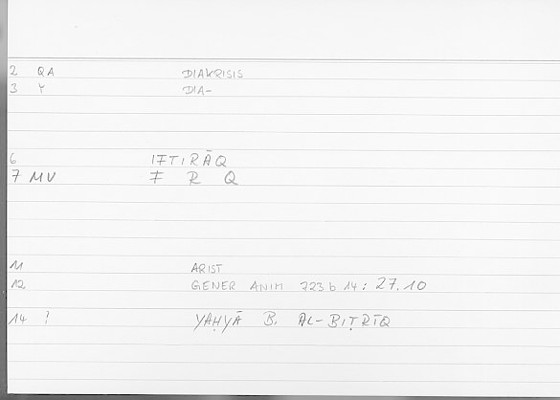 2 QA DIAKRISIS
3 Y DIA-
6 IFTIRĀQ
7 MV F R Q
11 ARIST
12 GENER ANIM 223 b 14: 27.10
14 ? YAḤYĀ B. AL-BIṬRĪQ